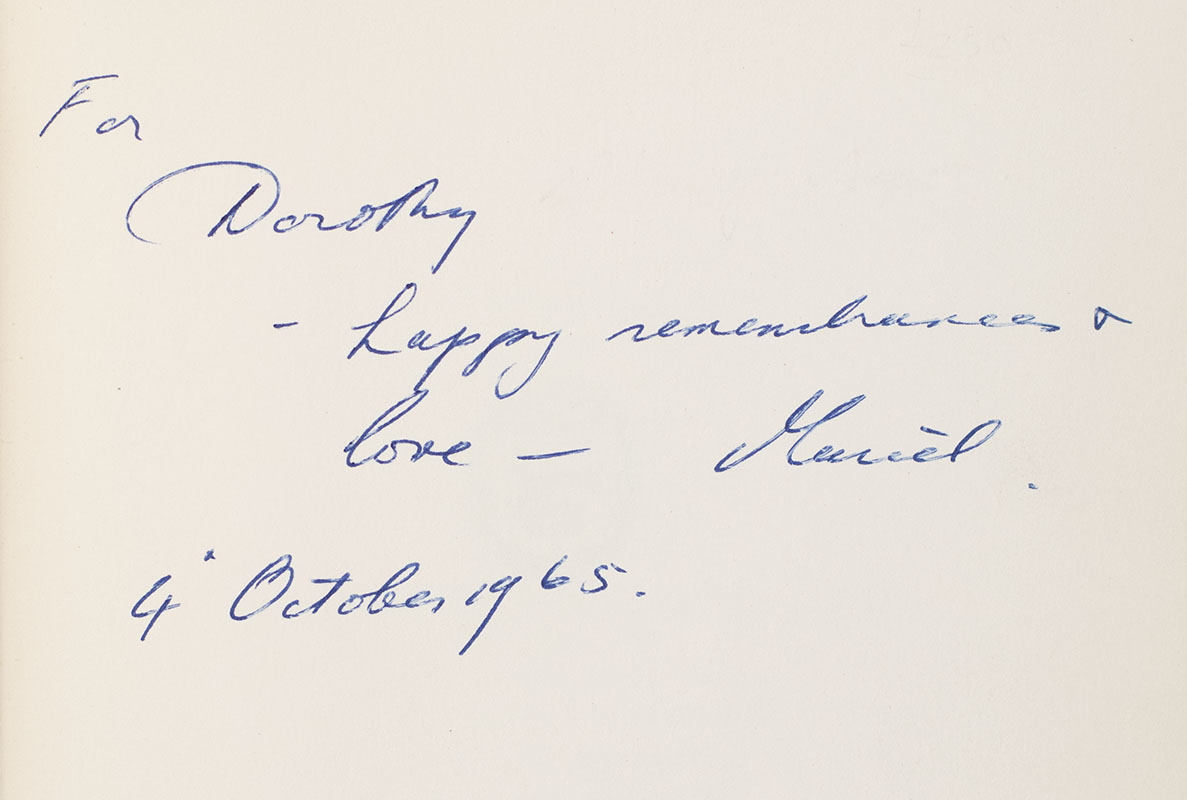 For
Dorothy
- happy remembrances &
love — Muriel.
4 October 1965.